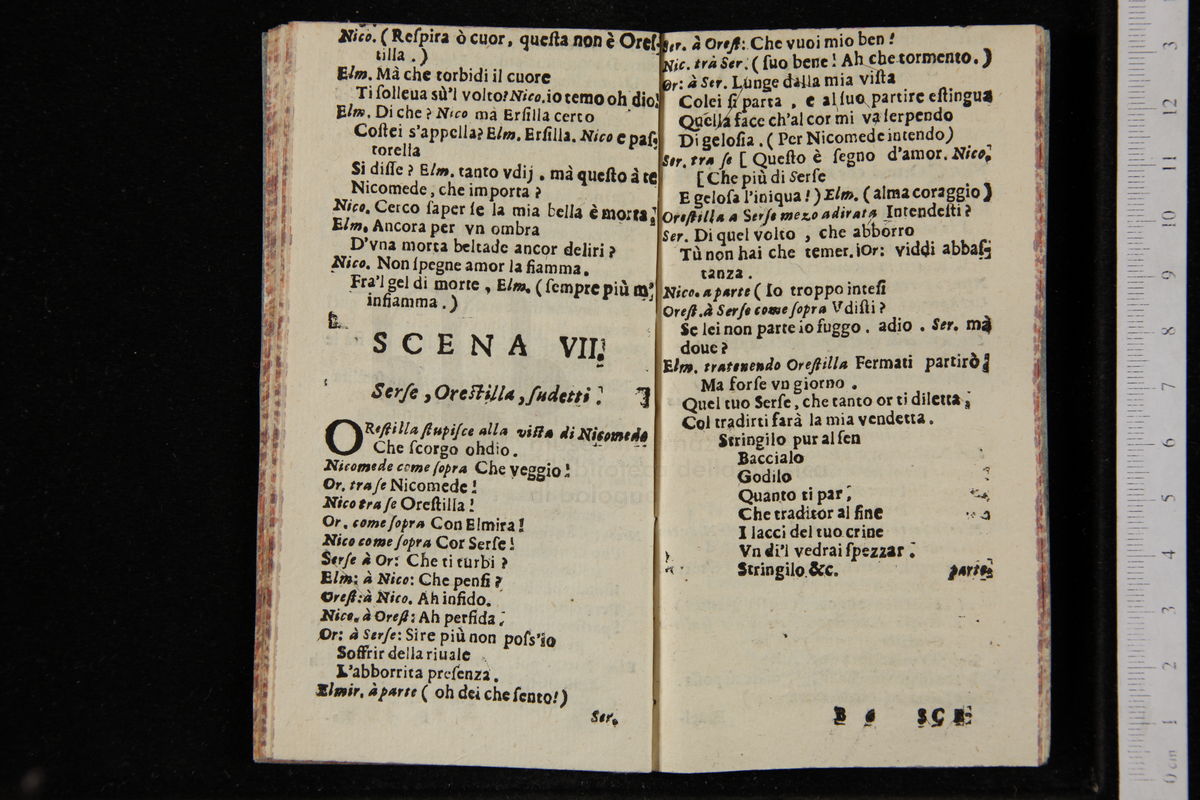 Nico. (Reſpira ò cuor, queſta non è Oreſ-
tilla.)
Elm. Mà che torbidi il cuore
Ti ſolleua sù'l volto? Nico. io temo oh dio!
Elm. Di che? Nico mà Erſilla certo
Coſtei s'appella? Elm. Erſilla. Nico e paſ-
torella
Si diſſe? Elm. tanto vdij. mà queſto à te
Nicomede, che importa?
Nico. Cerco ſaper ſe la mia bella è morta;
Elm. Ancora per vn ombra
D'vna morta beltade ancor deliri?
Nico. Non ſpegne amor la fiamma.
Fra'l gel di morte, Elm. (ſempre più m'
infiamma.)
SCENA VII.
Serſe, Oreſtilla, ſudetti.
OReſtilla ſtupiſce alla viſta di Nicomede
Che ſcorgo ohdio.
Nicomede come ſopra Che veggio!
Or. tra ſe Nicomede!
Nico tra ſe Oreſtilla!
Or. come ſopra Con Elmira!
Nico come ſopra Cor Serſe!
Serſe à Or: Che ti turbi?
Elm: à Nico: Che penſi?
Oreſt: à Nico. Ah infido.
Nico. à Oreſt: Ah perfida.
Or: à Serſe: Sire più non poſs'io
Soffrir della riuale
L'abborrita preſenza.
Elmir. à parte (oh dei che ſento!)
Ser.
Ser. à Oreſt: Che vuoi mio ben!
Nic. trà Ser. (ſuo bene! Ah che tormento.)
Or: à Ser. Lunge dalla mia viſta
Colei ſi parta, e al ſuo partire eſtingua
Quella face ch'al cor mi va ſerpendo
Di geloſia. (Per Nicomede intendo)
Ser. tra ſe [Queſto è ſegno d'amor. Nico.
[Che più di Serſe
E geloſa l'iniqua!) Elm. (alma coraggio)
Oreſtilla a Serſe mezo adirata Intendeſti?
Ser. Di quel volto, che abborro
Tù non hai che temer. iOr: viddi abbaſ-
tanza.
Nico. a parte (Io troppo inteſi
Oreſt. à Serſe come ſopra Vdiſti?
Se lei non parte io fuggo. adio. Ser. mà
doue?
Elm. tratenendo Oreſtilla Fermati partirò;
Ma forſe vn giorno.
Quel tuo Serſe, che tanto or ti diletta;
Col tradirti farà la mia vendetta.
Stringilo pur al ſen
Baccialo
Godilo
Quanto ti par;
Che traditor al fine
I lacci del tuo crine
Vn di'l vedrai ſpezzar.
Stringilo &c. parte.
B 6 SCE